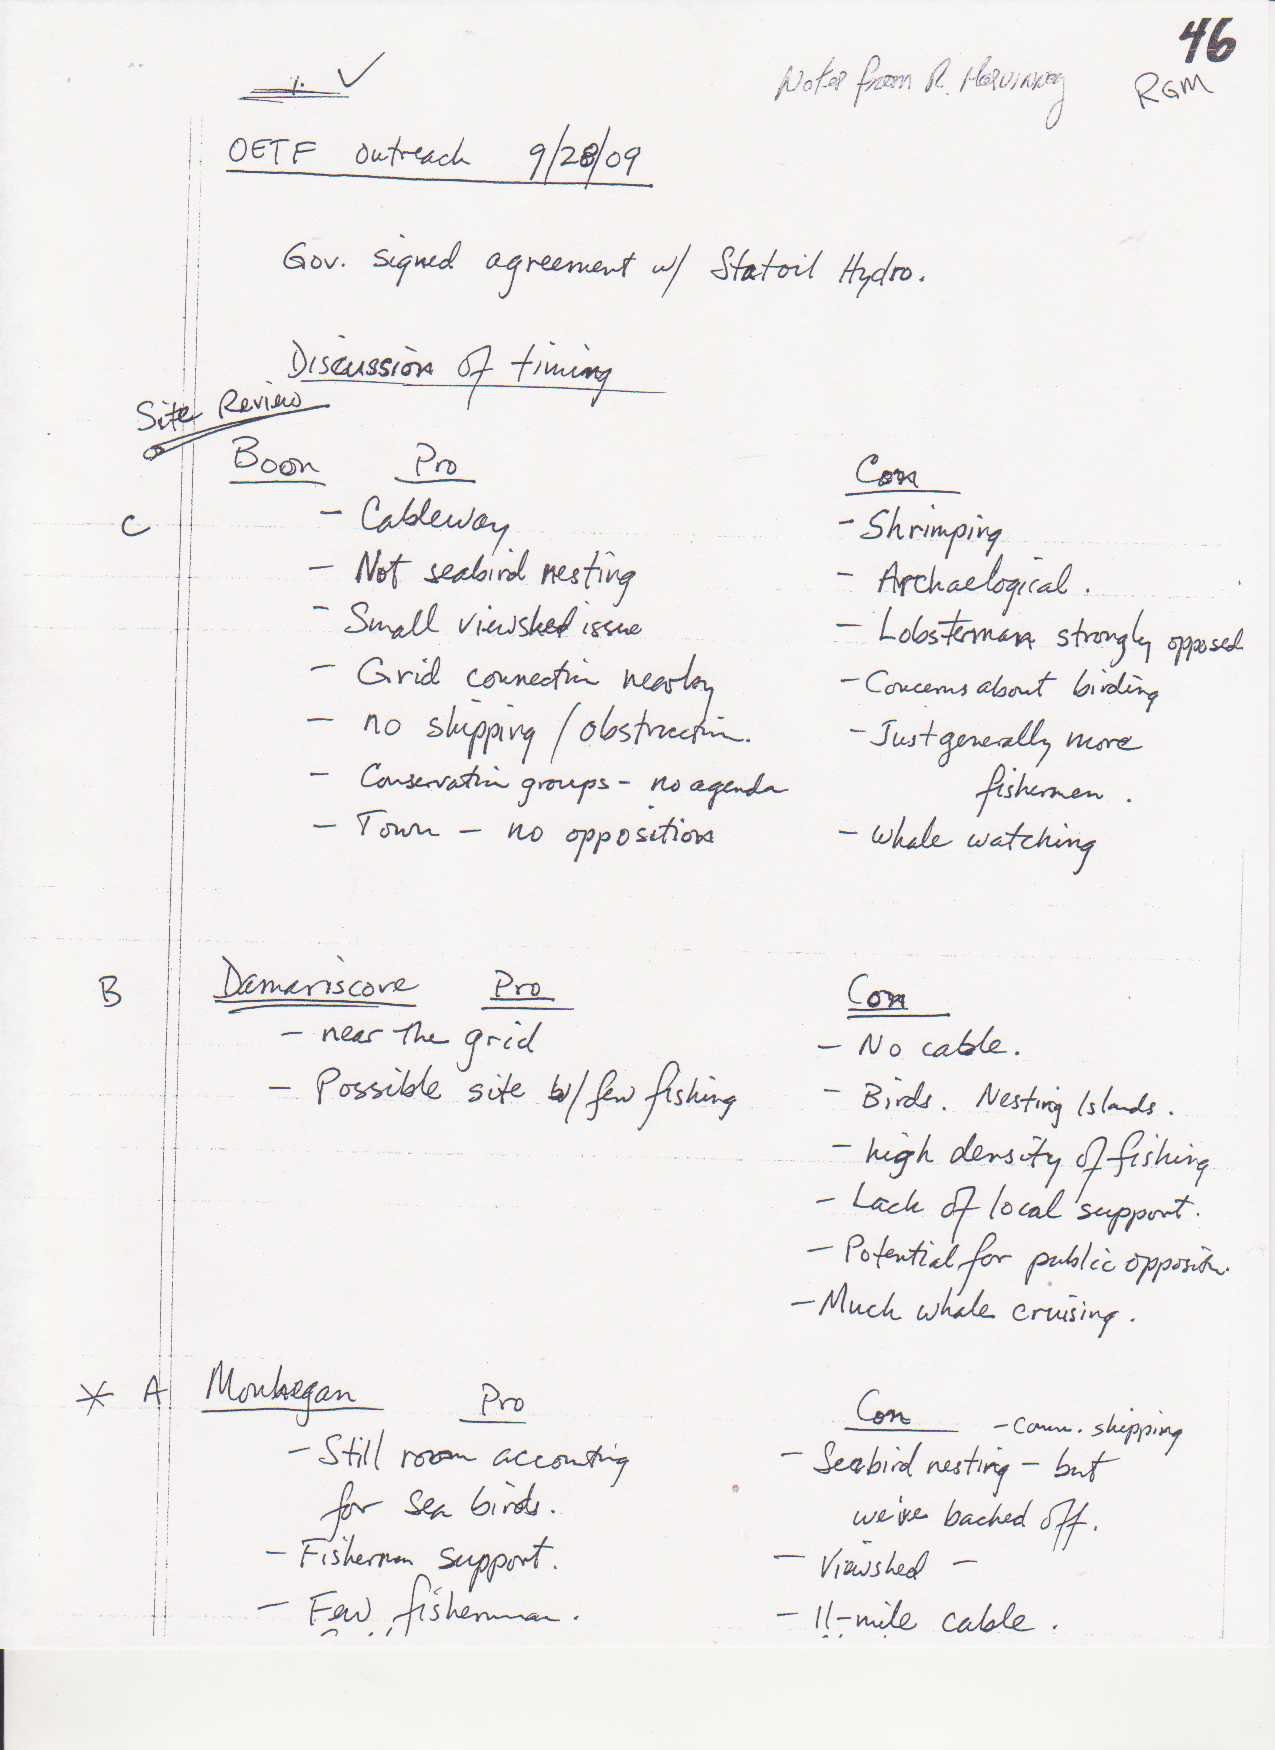 46
Notes from R.
RGM
1. ✓
OETF outreach 9/28/09
Gov. signed agreement w/ Statoil Hydro.
Discussion of timing
Site Review
Boon Pro Con
C
- Cableway
- Not seabird nesting
- Small viewshed issue
- Grid connection nearby
- no shipping / obstruction.
- Conservation groups - no agenda
- Town - no opposition
- Shrimping
- Archaelogical.
- Lobsterman strongly opposed
- Concerns about birding
- Just generally more
fishermen.
- whale watching
B Damariscove Pro Con
- near the grid
- Possible site w/ few fishing
- No cable.
- Birds. Nesting Islands.
- high density of fishing
- Lack of local support.
- Potential for public opposition.
- Much whale cruising.
* A Monhegan Pro Con
- Still room accounting
for sea birds.
- Fisherman support.
- Few fisherman.
- comm. shipping
- Seabird nesting - but
we've backed off.
- Viewshed -
- 11-mile cable.